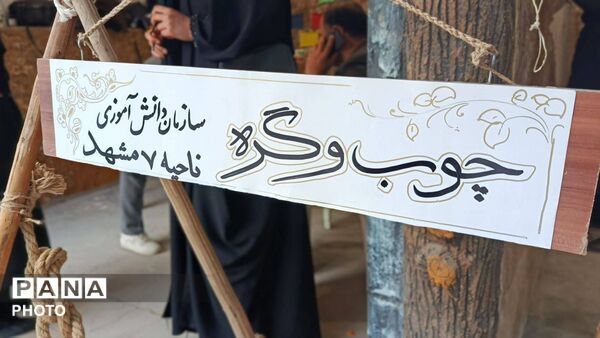 چوب و گره
سازمان دانش آموزی
ناحیه ۷ مشهد
PANA
PHOTO